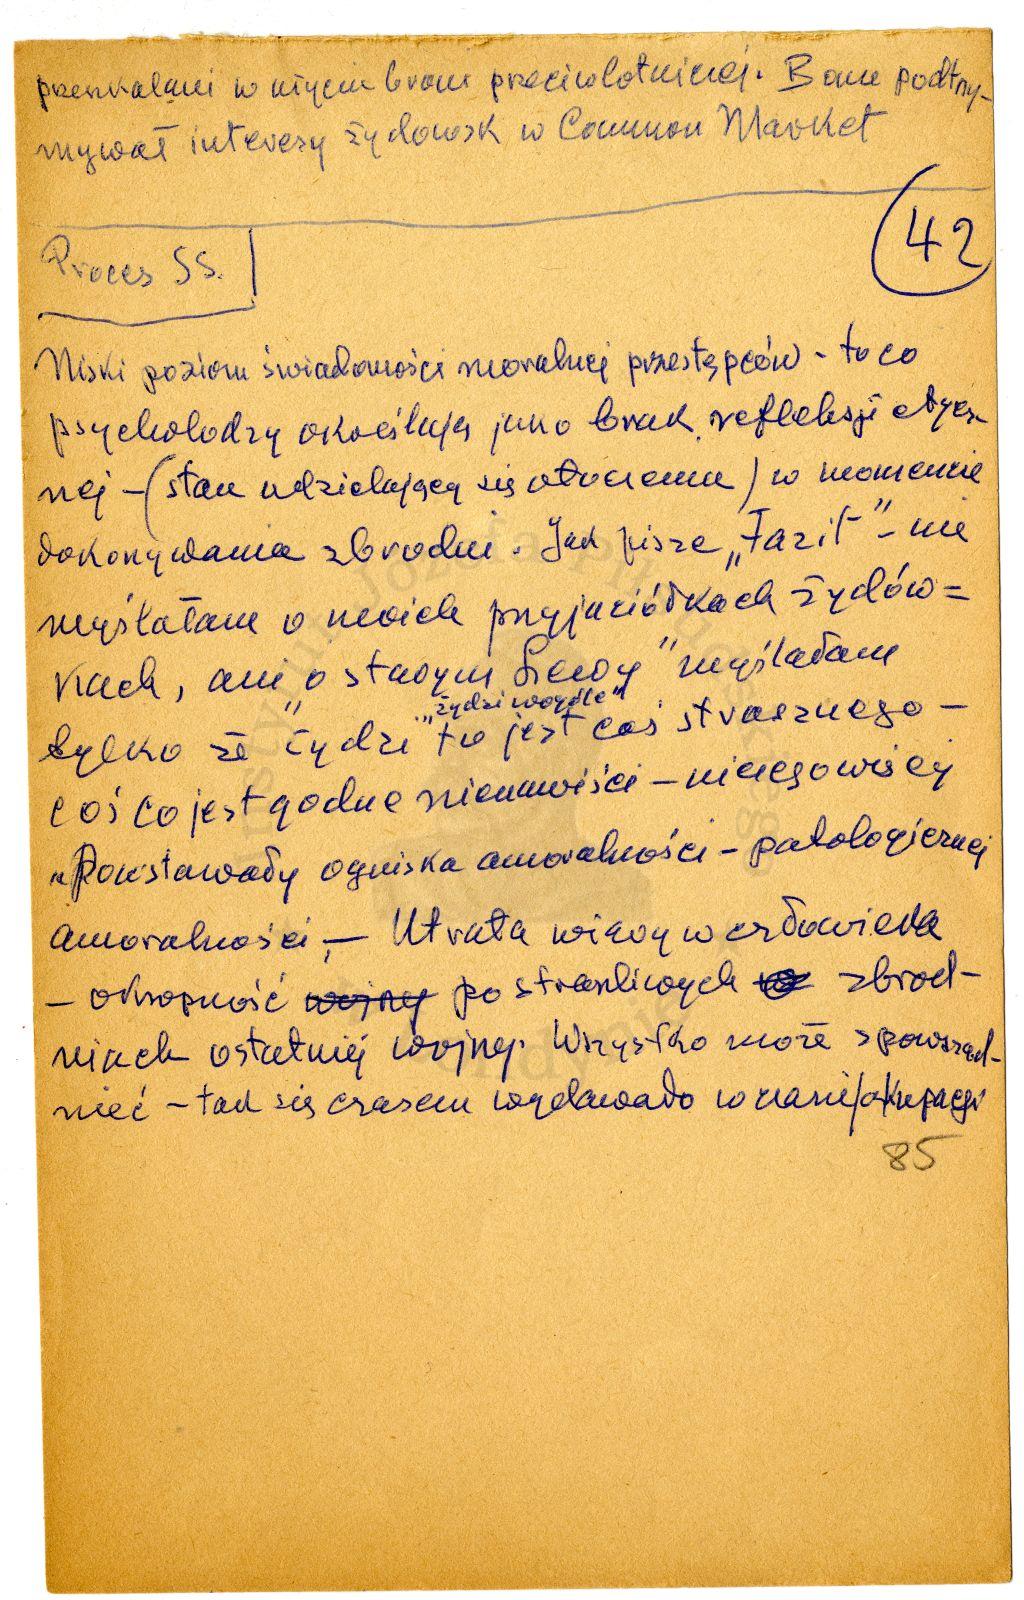 przeszkalani w użyciu broni przeciwlotniczej. Bonn podtrzy-
mywał interesy żydowsk w Common Market
42
Proces SS.
Niski poziom świadomości moralnej przestępców - to co
psycholodzy określają jako brak refleksji etycz-
nej - (stan udzielający się otoczeniu) w momencie
dokonywania zbrodni. Jak pisze „Fazit" - nie
myślałam o moich przyjaciółkach żydów=
kach, ani o starym Lewy" myślałam
„żydzi wogóle"
tylko że "żydzi" to jest coś strasznego -
coś co jest godne nienawiści - niczego więcej
„Powstawały ogniska amoralności - patologicznej
amoralności, - Utrata wiary w człowieka
- okropność wojny po straszliwych zbrod-
niach ostatniej wojny. Wszystko może spowszed-
nieć - tak się czasem wydawało w czasie okupacji
85